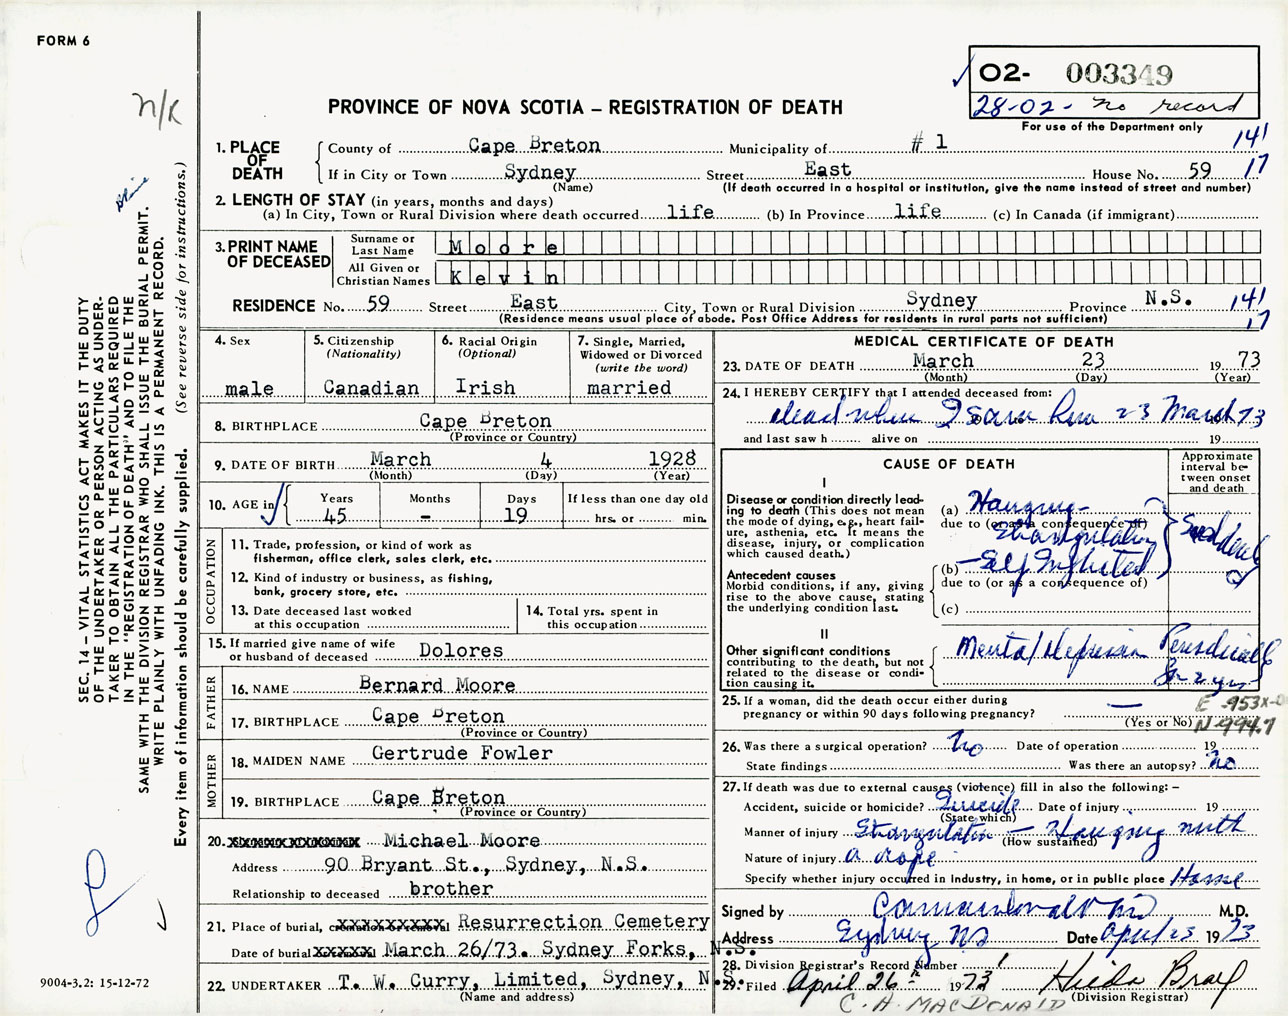 FORM 6
N/K
O2- 003349
28-02- no record
For use of the Department only
PROVINCE OF NOVA SCOTIA – REGISTRATION OF DEATH
141
17
1. PLACE OF DEATH
County of Cape Breton Municipality of # 1
If in City or Town Sydney Street East House No. 59
(Name) (If death occurred in a hospital or institution, give the name instead of street and number)
2. LENGTH OF STAY (in years, months and days)
(a) In City, Town or Rural Division where death occurred life (b) In Province life (c) In Canada (if immigrant)
3. PRINT NAME OF DECEASED
Surname or Last Name Moore
All Given or Christian Names Kevin
RESIDENCE No. 59 Street East City, Town or Rural Division Sydney Province N.S. 141
17
(Residence means usual place of abode. Post Office Address for residents in rural parts not sufficient)
4. Sex male
5. Citizenship (Nationality) Canadian
6. Racial Origin (Optional) Irish
7. Single, Married, Widowed or Divorced (write the word) married
8. BIRTHPLACE Cape Breton
(Province or Country)
9. DATE OF BIRTH March 4 1928
(Month) (Day) (Year)
10. AGE in Years 45 Months - Days 19 If less than one day old hrs. or min.
OCCUPATION
11. Trade, profession, or kind of work as fisherman, office clerk, sales clerk, etc.
12. Kind of industry or business, as fishing, bank, grocery store, etc.
13. Date deceased last worked at this occupation
14. Total yrs. spent in this occupation
15. If married give name of wife or husband of deceased Dolores
FATHER
16. NAME Bernard Moore
17. BIRTHPLACE Cape Breton
(Province or Country)
MOTHER
18. MAIDEN NAME Gertrude Fowler
19. BIRTHPLACE Cape Breton
(Province or Country)
20. Michael Moore
Address 90 Bryant St., Sydney, N.S.
Relationship to deceased brother
21. Place of burial, cremation or removal Resurrection Cemetery
Date of burial March 26/73. Sydney Forks, N.S.
22. UNDERTAKER T. W. Curry, Limited, Sydney, N.S.
(Name and address)
MEDICAL CERTIFICATE OF DEATH
23. DATE OF DEATH March 23 1973
(Month) (Day) (Year)
24. I HEREBY CERTIFY that I attended deceased from:
dead when I saw him 23 March 73
and last saw h alive on 19
CAUSE OF DEATH
Approximate interval between onset and death
I
Disease or condition directly leading to death (This does not mean the mode of dying, e.g., heart failure, asthenia, etc. It means the disease, injury, or complication which caused death.)
(a) Hanging-
due to (or as a consequence of)
Strangulation
Antecedent causes
Morbid conditions, if any, giving rise to the above cause, stating the underlying condition last.
(b) - Self Inflicted
due to (or as a consequence of)
(c)
II
Other significant conditions contributing to the death, but not related to the disease or condition causing it.
Mental depression Periodically
for 2 yrs
25. If a woman, did the death occur either during pregnancy or within 90 days following pregnancy? —
(Yes or No)
N 994.7
26. Was there a surgical operation? no Date of operation 19
State findings Was there an autopsy? no
27. If death was due to external causes (violence) fill in also the following: –
Accident, suicide or homicide? Suicide Date of injury 19
(State which)
Manner of injury Strangulation — Hanging with
(How sustained)
Nature of injury a rope
Specify whether injury occurred in industry, in home, or in public place Home
Signed by M.D.
Address Sydney NS Date April 23 1973
28. Division Registrar's Record Number
29. Filed April 26th 1973 Hilda
(Division Registrar)
C. A. MACDONALD
SEC. 14 – VITAL STATISTICS ACT MAKES IT THE DUTY
OF THE UNDERTAKER OR PERSON ACTING AS UNDER-
TAKER TO OBTAIN ALL THE PARTICULARS REQUIRED
IN THE "REGISTRATION OF DEATH" AND TO FILE THE
SAME WITH THE DIVISION REGISTRAR WHO SHALL ISSUE THE BURIAL PERMIT.
WRITE PLAINLY WITH UNFADING INK. THIS IS A PERMANENT RECORD.
Every item of information should be carefully supplied. (See reverse side for instructions.)
9004-3.2: 15-12-72